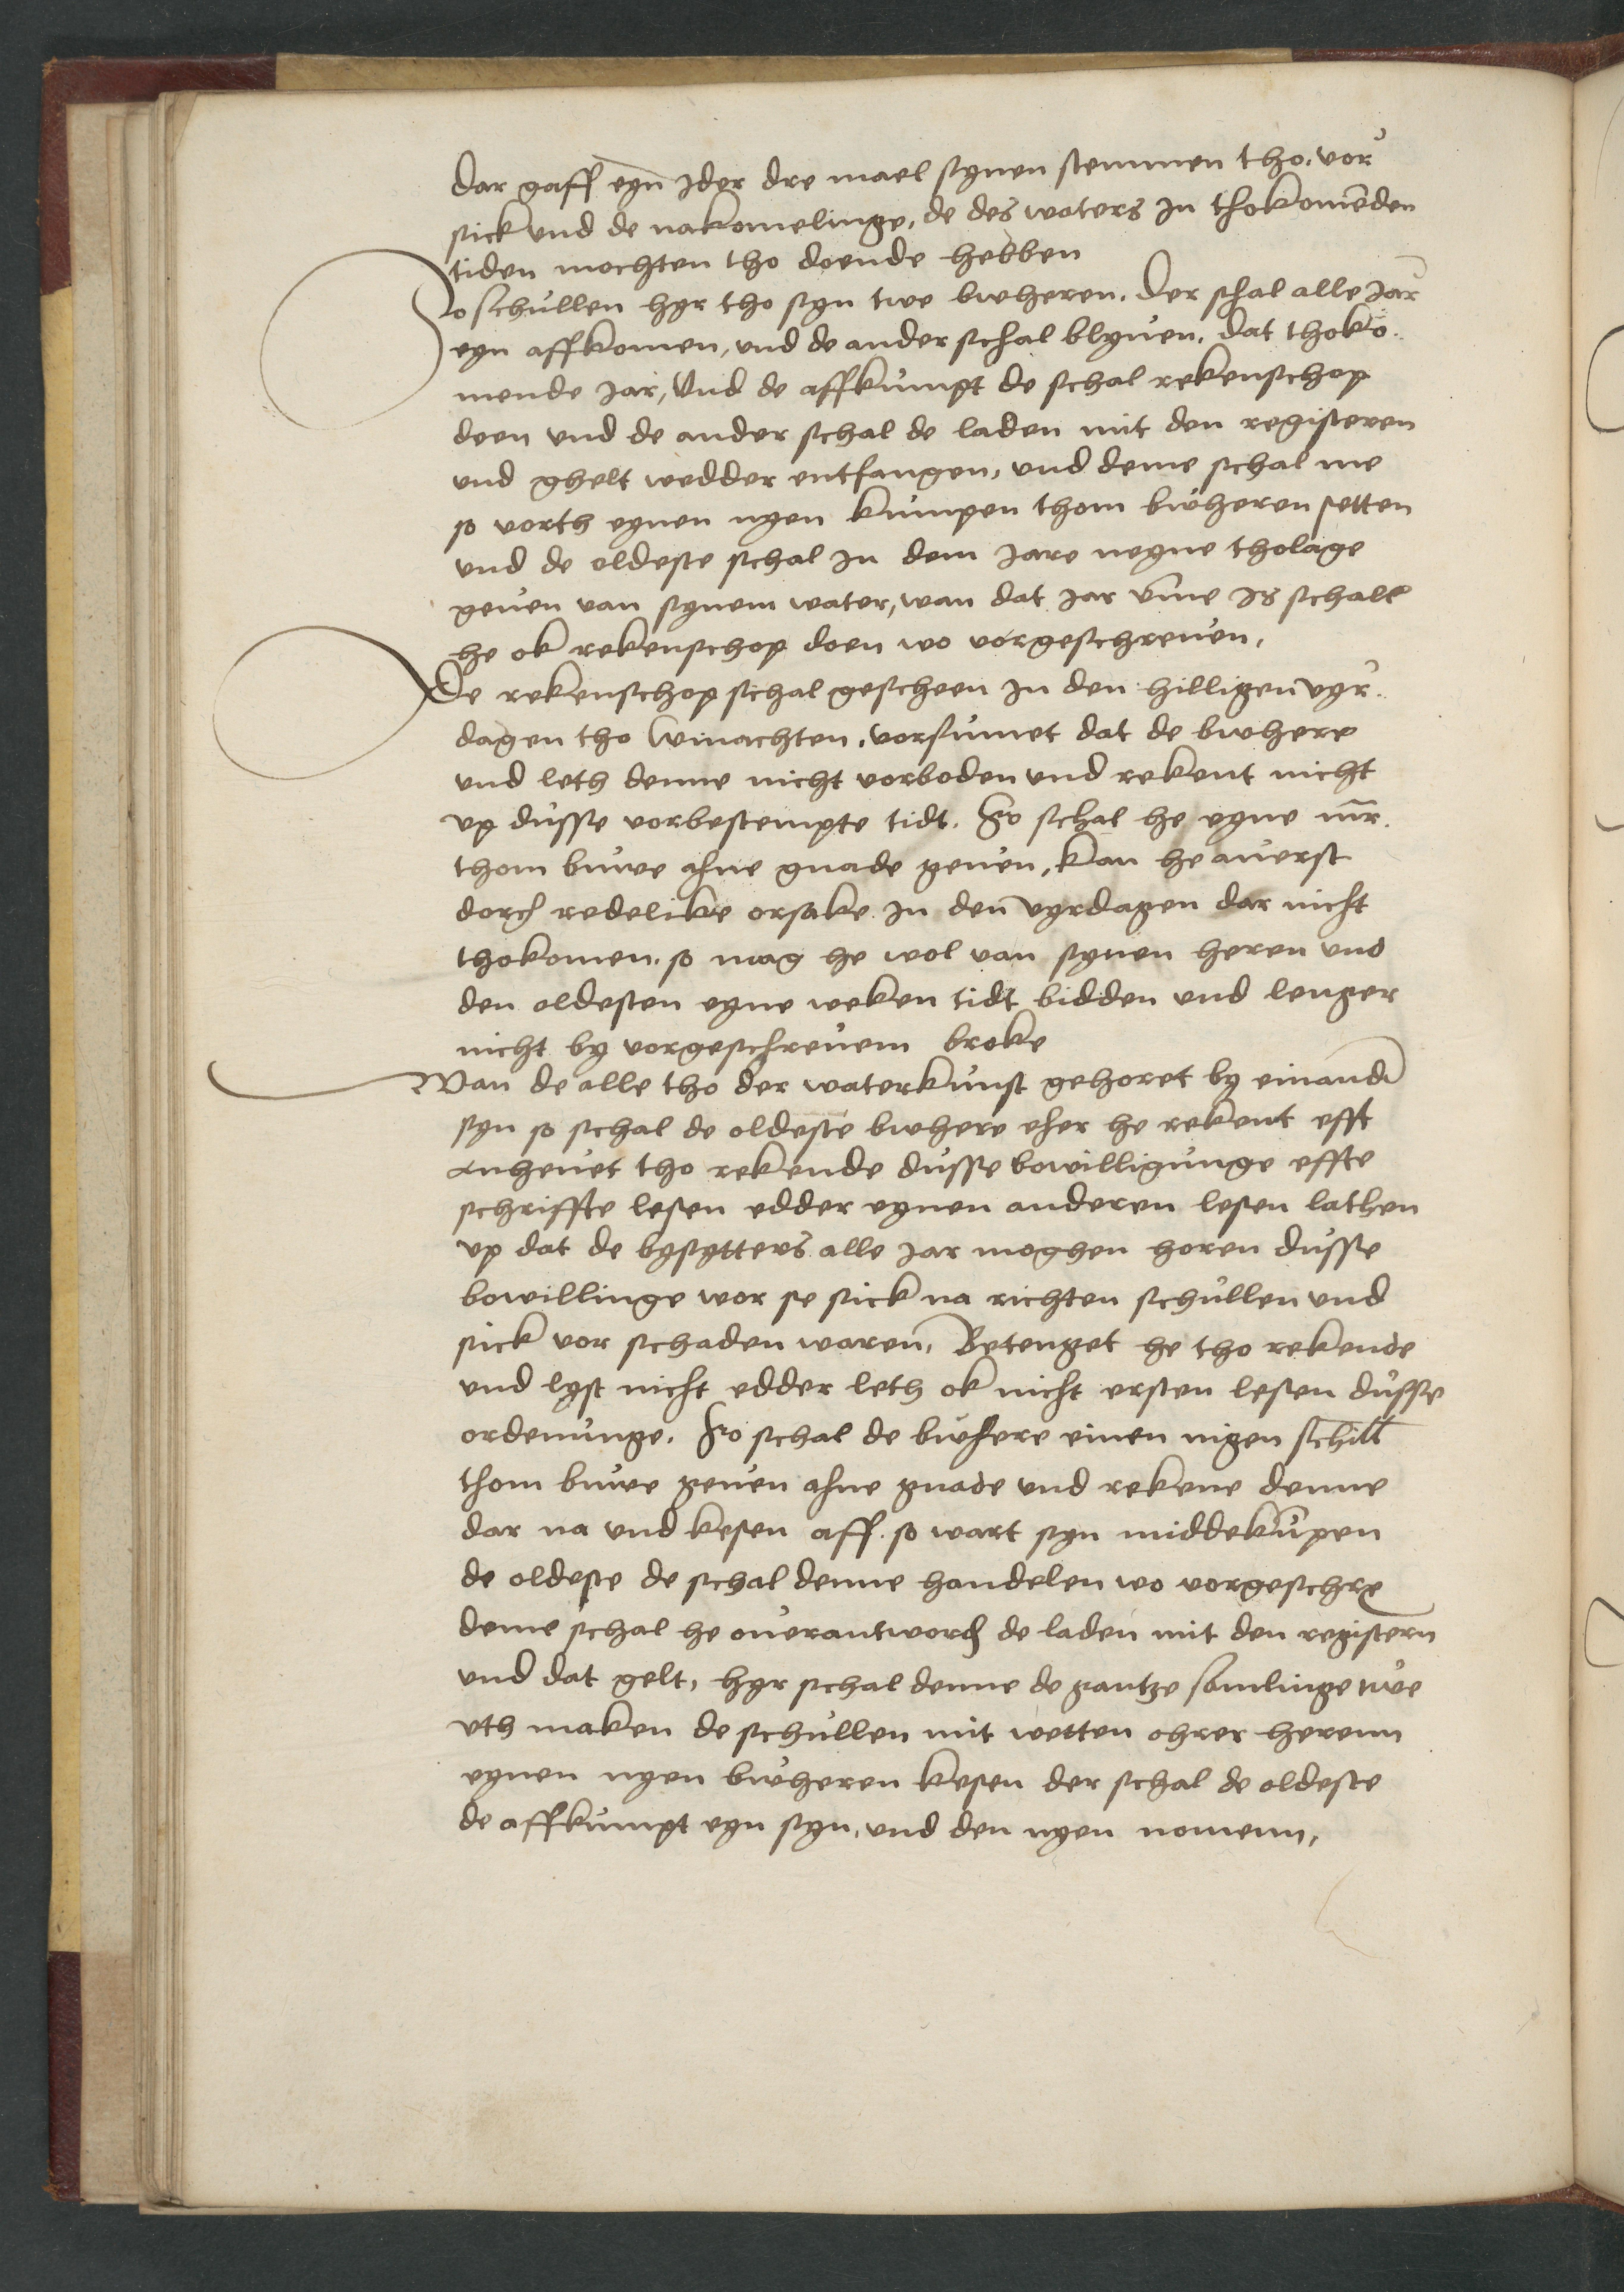 dar gaff eyn Jder dre mael synen stemmen tho. vor
sick und de nakomelinge, de des waters Jn thokomēden
tiden mochten tho doende hebben
So schullen hyr tho syn twe bwheren. Der schal alle Jar
eyn affkomen, und de ander schal blyuen. dat thoko-
mende Jar, Und de affkumpt de schal rekenschop
doen und de ander schal de laden mit den registeren
und ghelt wedder entfangen, und deme schal me
so vorth eynen nyen kumpen thom bwheren setten
und de oldeste schal Jn dem Jare neyne tholage
geuen van synem water, wan dat Jar vmme Js schall
he ok rekenschop doen wo vorgeschreuen,
De rekenschop schal gescheen Jn den hilligen vyr-
dagen tho winachten, vorsumet dat de bwhere
und leth denne nicht vorboden und rekent nicht
vp dusse vorbestempte tidt. So schal he eyne mr.
thom buwe ahne gnade geuen, kan he auerst
dorch redelike orsake Jn den vyrdagen dar nicht
thokomen. so mag he wol van synen heren und
den oldesten eyne weken tidt bidden und lenger
nicht by vorgeschreuem broke
Wan de alle tho der waterkunst gehoret by einand
syn so schal de oldeste bwhere eher he rekent efft
anheuet tho rekende dusse bowilligunge effte
schriffte lesen edder eynen anderen lesen lathen
vp dat de bysytters alle Jar moghen horen dusse
bowillinge wor se sick na richten schullen und
sick vor schaden waren, Betenget he tho rekende
und lyst nicht edder leth ok nicht ersten lesen dusse
ordenunge. So schal de bwhere einen nigen schill
thom buwe geuen ahne gnade und rekene denne
dar na und kesen aff. so wart syn middekūpen
de oldeste de schal denne handelen wo vorgeschre
deme schal he ouerantword de laden mit den registern
und dat gelt, hyr schal denne de gantze samlinge twe
vth maken de schullen mit wetten ohrer herenn
eynen nyen bwheren kesen der schal de oldeste
de affkumpt eyn syn, und den nyen nomenn,